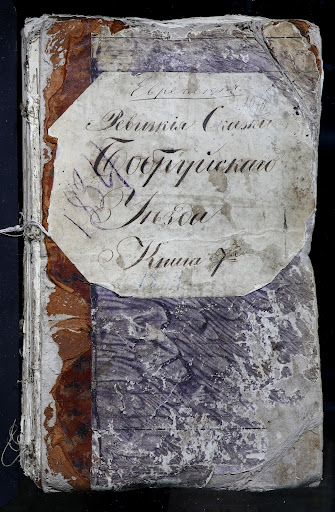 Еврейскія
Ревизкія Сказки
Бобруйскаго
Уѣзда
Книга 7я